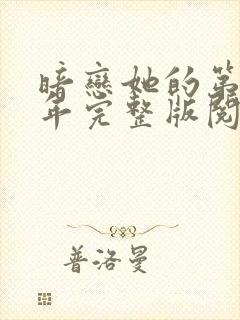 暗戀她的第
年完整版閱
普洛曼